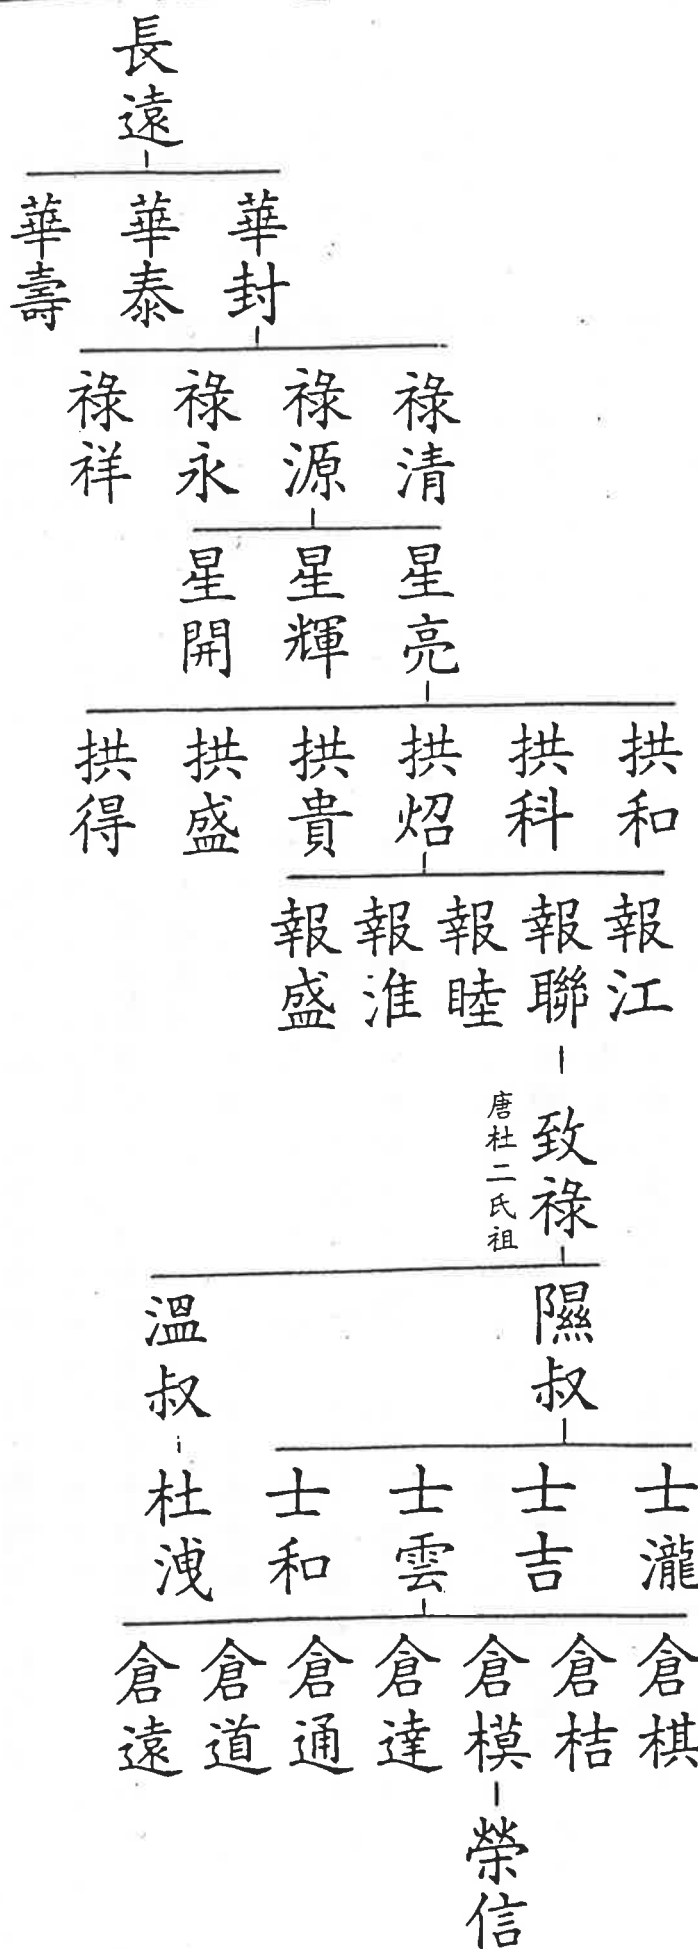 長遠
華封
華泰
華壽
祿清
祿源
祿永
祿祥
星亮
星輝
星開
拱和
拱科
拱炤
拱貴
拱盛
拱得
報江
報聯
報睦
報淮
報盛
致祿
唐杜二氏祖
隰叔
溫叔
士瀧
士吉
士雲
士和
杜洩
倉棋
倉桔
倉模
倉達
倉通
倉道
倉遠
榮信